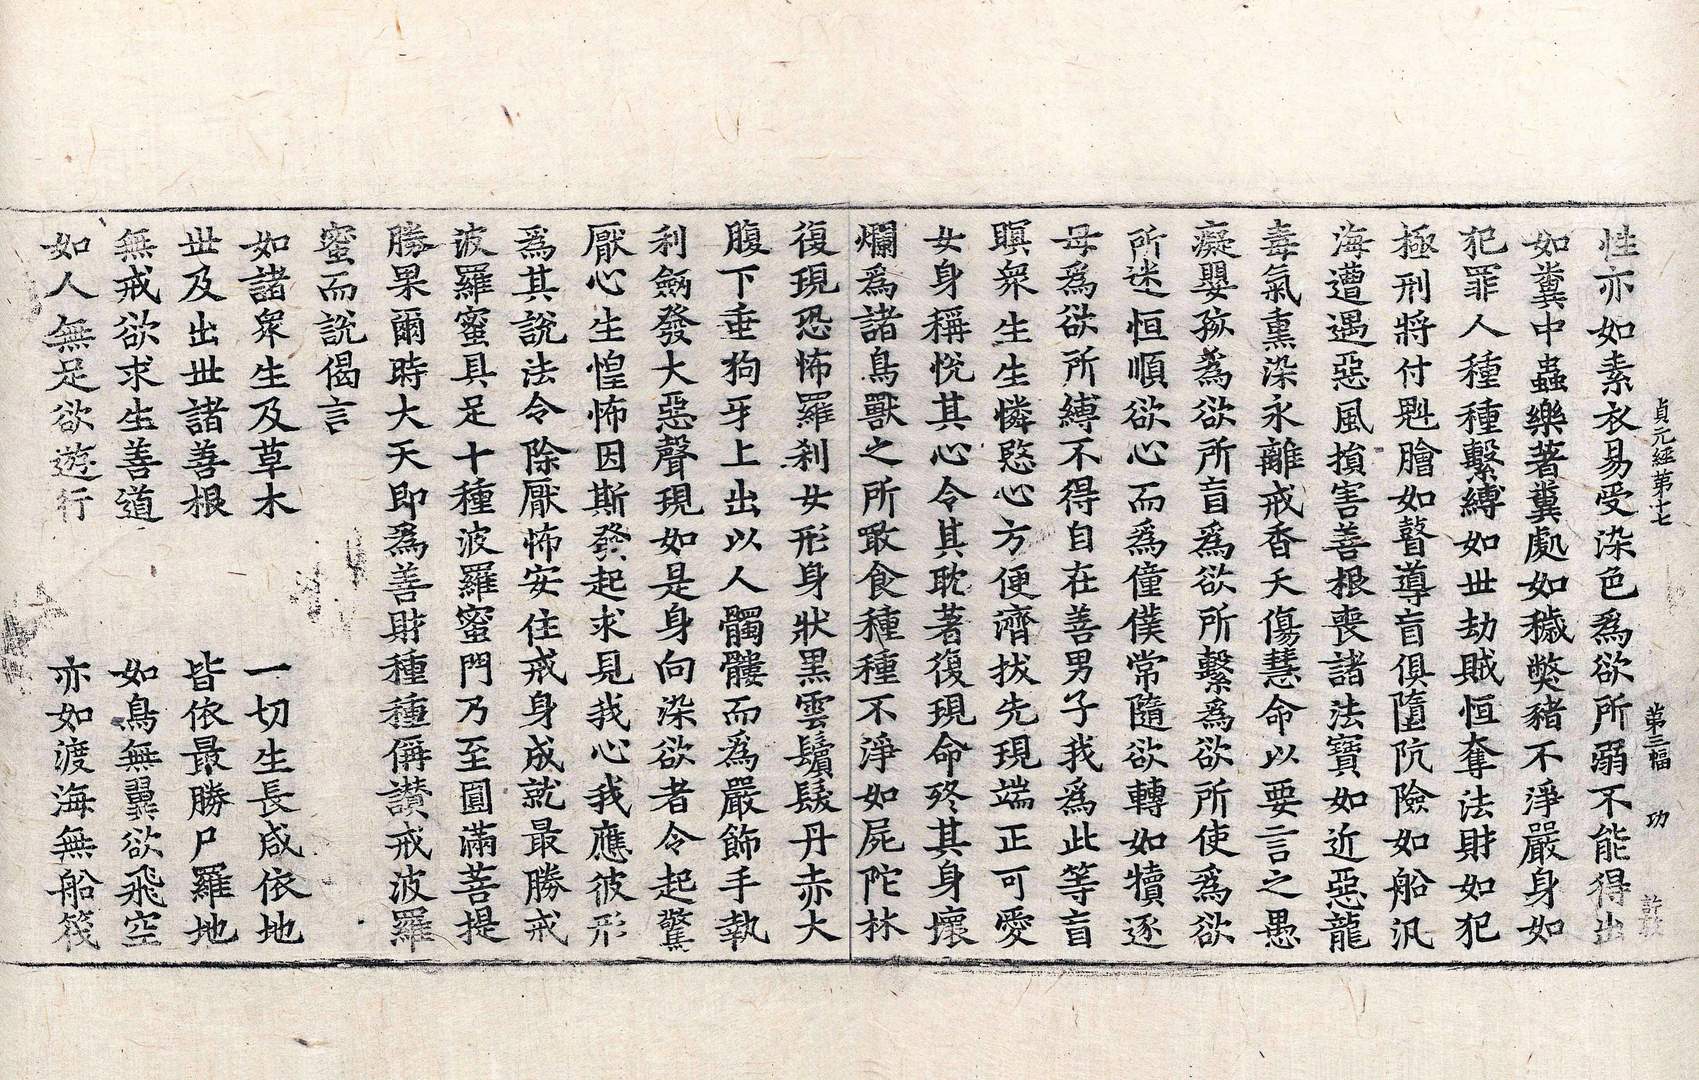 貞元經第十七 第三幅 功
性亦如素衣易受染色爲欲所溺不能得出
如糞中蟲樂著糞處如穢獘豬不淨嚴身如
犯罪人種種繫縛如世劫賊恒奪法財如犯
極刑將付魁膾如瞽導盲俱墮阬險如船汎
海遭遇惡風損害善根喪諸法寶如近惡龍
毒氣熏染永離戒香夭傷慧命以要言之愚
癡嬰孩爲欲所盲爲欲所繫爲欲所使爲欲
所迷恒順欲心而爲僮僕常隨欲轉如犢逐
母爲欲所縛不得自在善男子我爲此等盲
瞑衆生生憐愍心方便濟拔先現端正可愛
女身稱悅其心令其耽著復現命終其身壞
爛爲諸鳥獸之所噉食種種不淨如屍陀林
復現恐怖羅刹女形身狀黑雲鬚髮丹赤大
腹下垂狗牙上出以人髑髏而爲嚴飾手執
利劒發大惡聲現如是身向染欲者令起驚
厭心生惶怖因斯發起求見我心我應彼形
爲其說法令除厭怖安住戒身成就最勝戒
波羅蜜具足十種波羅蜜門乃至圓滿菩提
勝果爾時大天即爲善財種種稱讃戒波羅
蜜而說偈言
如諸衆生及草木 一切生長咸依地
世及出世諸善根 皆依最勝尸羅地
無戒欲求生善道 如鳥無翼欲飛空
如人無足欲遊行 亦如渡海無船筏